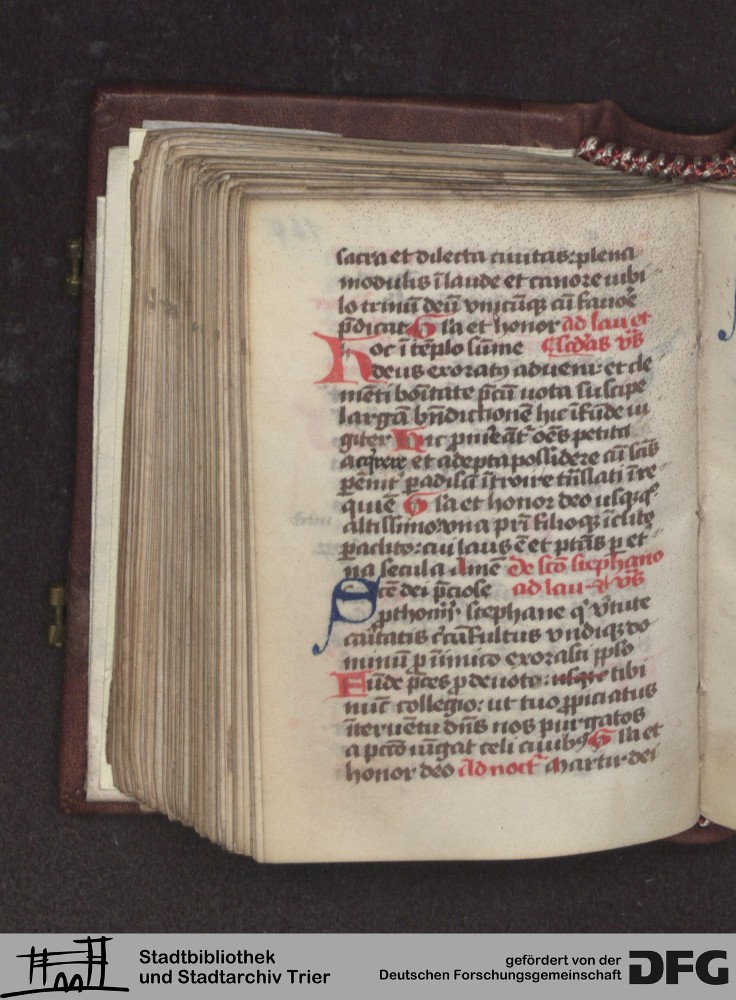 sacra et dilecta ciuitas: plena
modulis ī laude et canore iubi
lo trinū deū vnicūq̄ cū fauoe᷑
p̄dicat Gl̄a et honor ad lau et
Hoc ī tēplo sūme Sc̄das vs̄
deus exoratꝯ adueni: et cle
mēti boītate p̄cū uota suscipe
largā bn̄dictionē hic īfūde iu
giter Hic p̄mreāt oēs petita
acq̄rere et adepta possidere cū sc̄is
pēnit᷑ padisū ītroire trāslati ī re
quiē Gl̄a et honor deo usq̄q̄
altissimo vna pr̄i filioq̄ īclito
paclito: cui laus ē et ptās p et
na secula Amē De sc̄o stephano
Sc̄e dei p̄ciose ad lau et vs̄
pthom̄r stephane q̄ v̄tute
caritatis c̄cūfultus vndiq̄ do
minū p inimico exorasti pplo
Fūde p̄ces p deuoto: tibi
nūc collegio: ut tuo ppiciatus
īteruētu dn̄s nos purgatos
a pctō iūgat celi ciuibꝯ Gl̄a et
honor deo Ad noct᷑ Martir dei
Stadtbibliothek
und Stadtarchiv Trier
gefördert von der
Deutschen Forschungsgemeinschaft
DFG